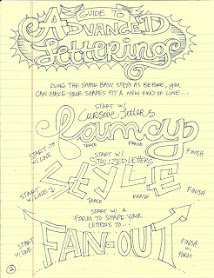 GUIDE TO
ADVANCED
Lettering
USING THE SAME BASIC STEPS AS BEFORE, YOU
CAN MAKE YOUR SHAPES FIT A NEW KIND OF LINE...
START W/
Cursive Letters
fancy
START W/ LINE
TRACE
ERASE
FINISH
START W/
STYLIZED LETTERS
STYLE
START W/ LINE
TRACE
ERASE
FINISH
START W/ A
FORM TO SHAPE YOUR
LETTERS TO...
FAN-OUT
START W/ LINE
TRACE
ERASE
FINISH
FORM